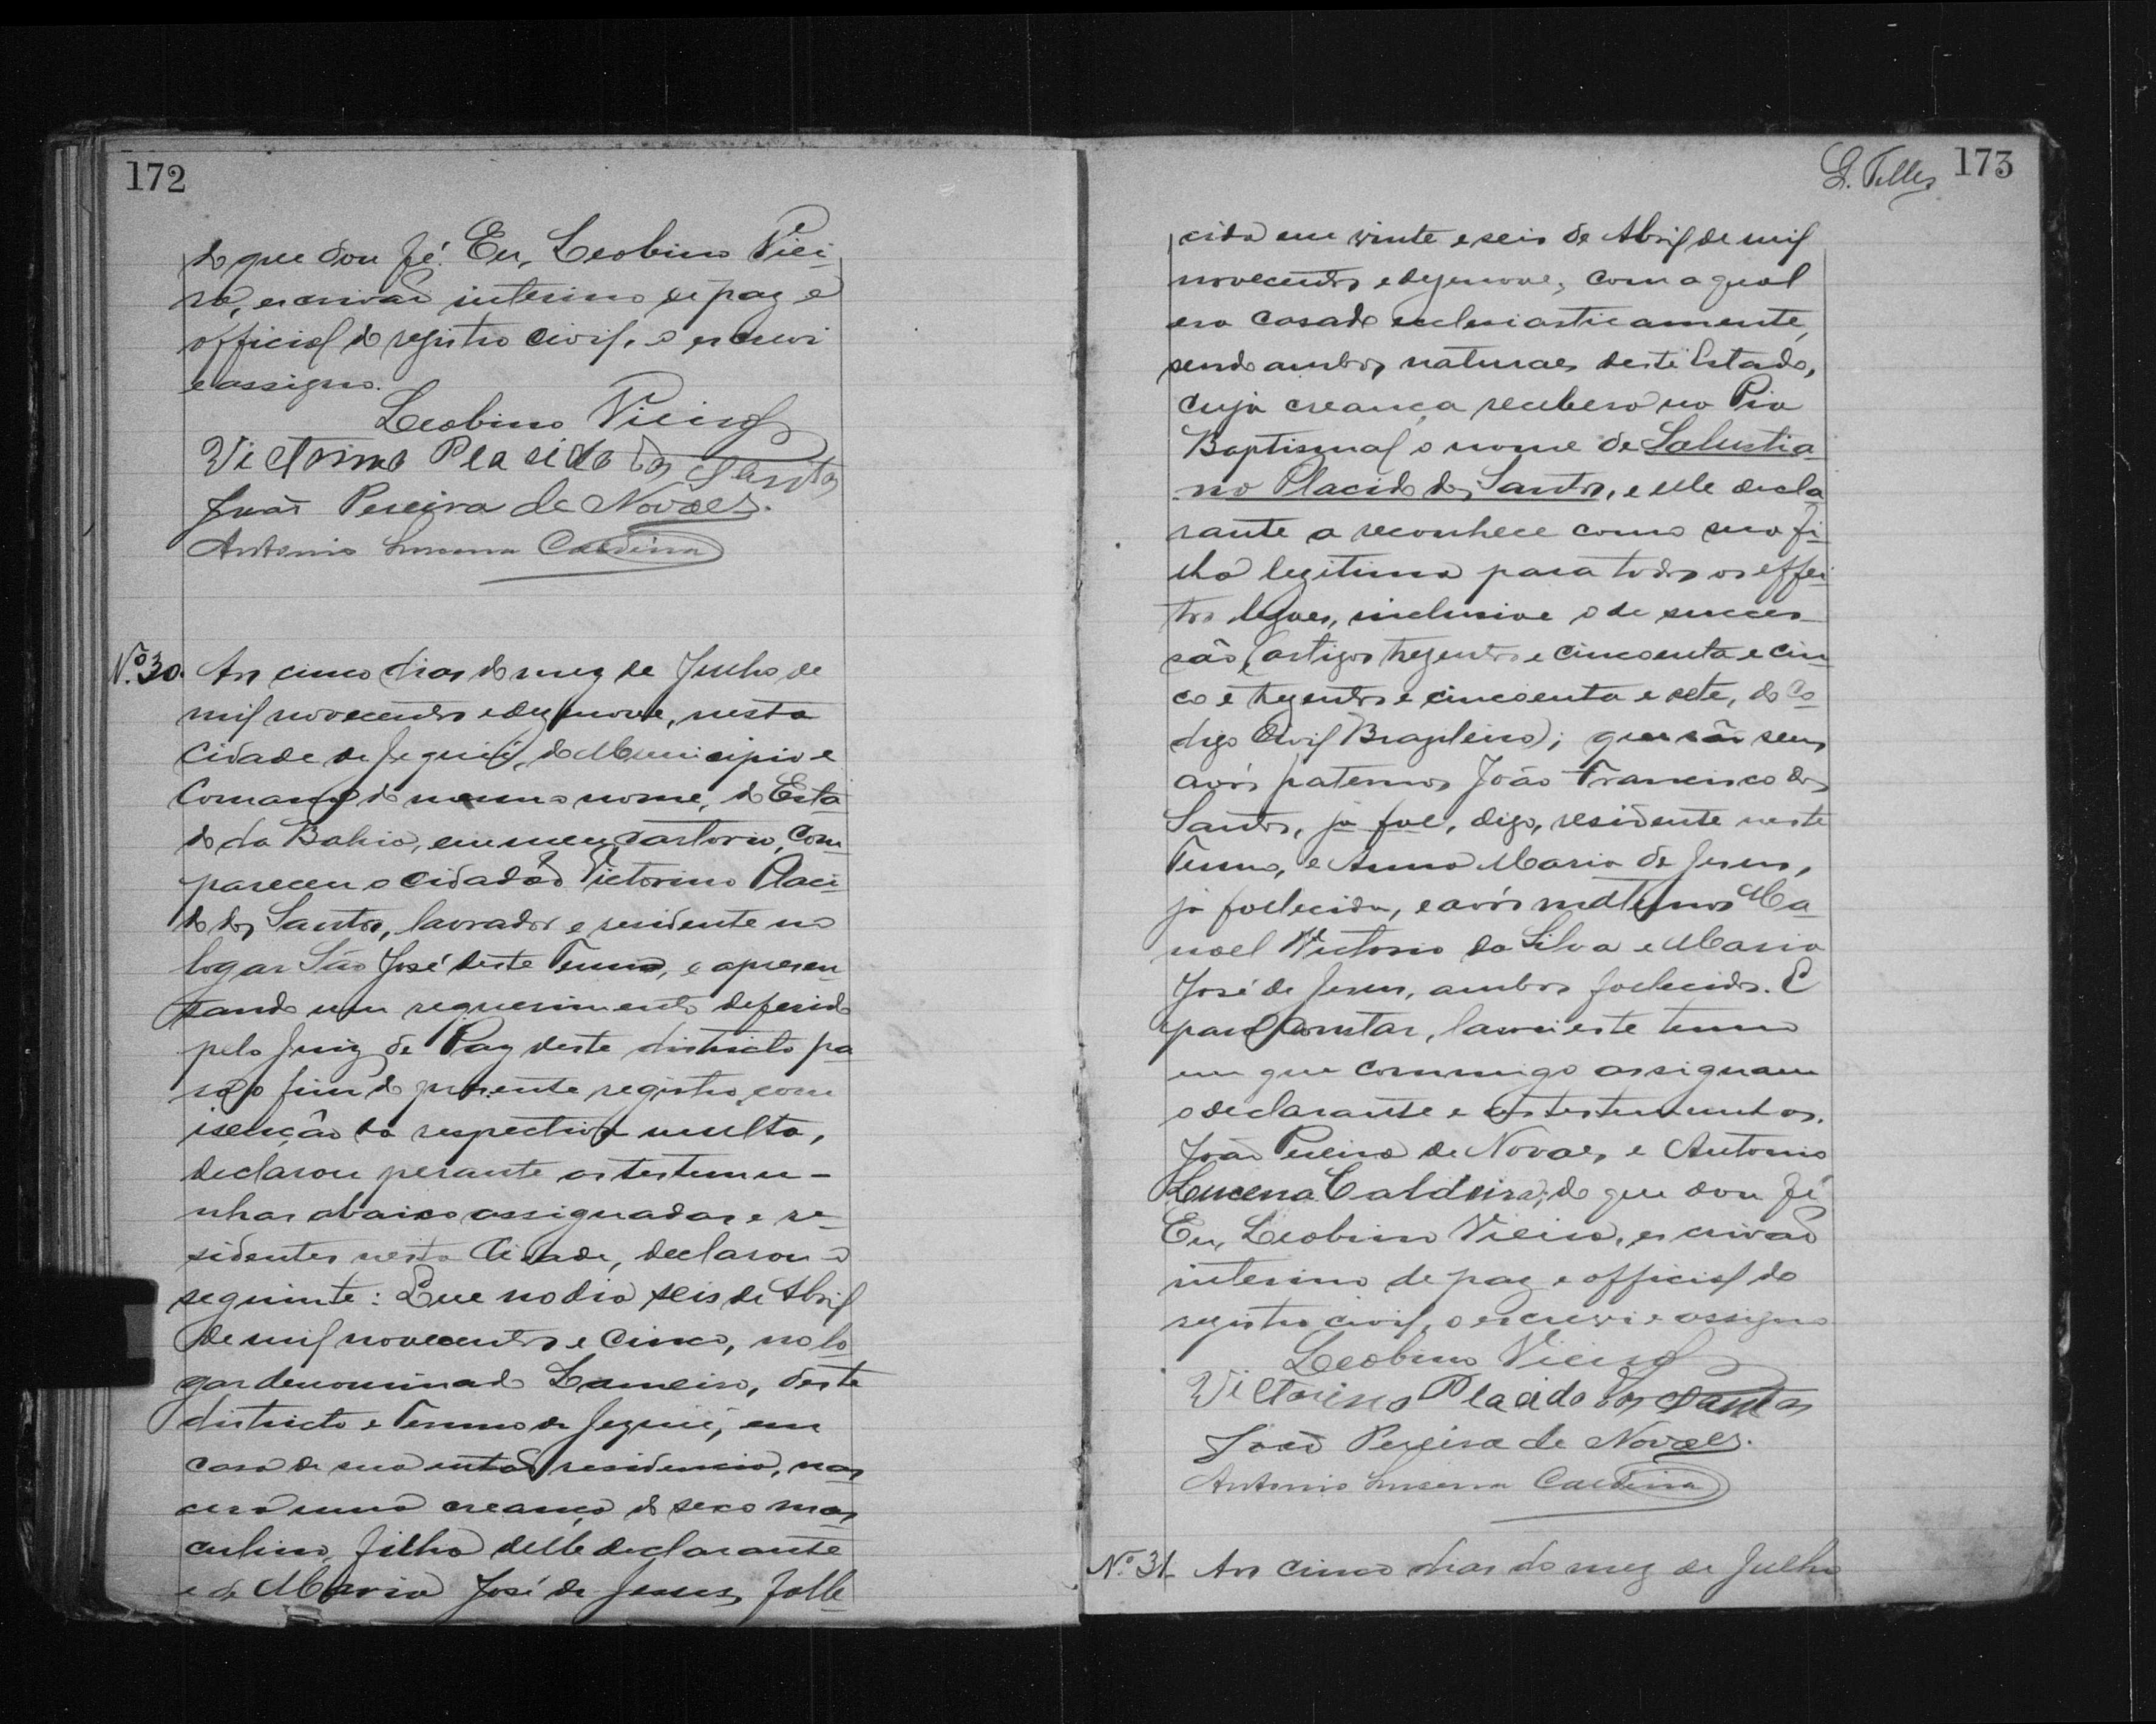 172
do que dou fé. Eu, Leobino Viei-
ra, escrivão interino de paz e
official do registro civil, o escrevi
e assigno.
Leobino Vieira
Victorino Placido dos Santos
João Pereira de Novaes.
Antonio Lucena Caldeira
Nº 30. Aos cinco dias do mez de Julho de
mil novecentos e dezenove, nesta
Cidade de Jequié, do Municipio e
Comarca do mesmo nome, do Esta
do da Bahia, em meu cartorio, com
pareceu o cidadão Victorino Placi-
do dos Santos, lavrador e residente no
logar São José deste Termo, e apresen
tando um requerimento deferido
pelo Juiz de Paz deste districto pa
ra o fim do presente registro, com
isenção da respectiva multa,
declarou perante as testemu-
nhas abaixo assignadas e re-
sidentes nesta Cidade, declarou o
seguinte: Que no dia seis de Abril
de mil novecentos e cinco, no lo
gar denominado Lameiro, deste
districto e Termo de Jequié, em
casa de sua então residencia, nas
cera uma creança do sexo mas
culino, filha delle declarante
e de Maria José de Jesus, falle-
L. Telles 173
cida em vinte e seis de Abril de mil
novecentos e dezenove, com a qual
era casado ecclesiasticamente,
sendo ambos naturaes deste Estado,
cuja creança recebera na Pia
Baptismal o nome de Salustia
no Placido dos Santos, e elle decla
rante a reconhece como sua fi-
lha legitima para todos os effei-
tos legaes, inclusive o de succes
são (artigos trezentos e cincoenta e cin
co e trezentos e cincoenta e sete, do Co
digo Civil Brazileiro); que são seus
avós paternos João Francisco dos
Santos, já fal, digo, residente neste
Termo, e Anna Maria de Jesus,
já fallecida, e avós maternos Ma
noel Victorio da Silva e Maria
José de Jesus, ambos fallecidos. E
para constar, lavrei este termo
em que commigo assignam
o declarante e as testemunhas.
João Pereira de Novaes e Antonio
Lucena Caldeira; do que dou fé
Eu, Leobino Vieira, escrivão
interino de paz e official do
registro civil, o escrevi e assigno
Leobino Vieira
Victorino Placido dos Santos
João Pereira de Novaes.
Antonio Lucena Caldeira
Nº 31. Aos cinco dias do mez de Julho